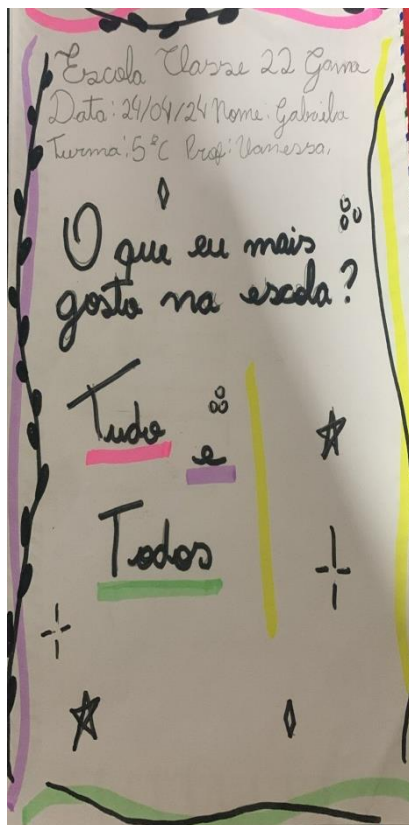 Escola Classe 22 Gama
Data: 24/04/24 Nome: Gabriela
Turma: 5ºC Prof: Vanessa,
O que eu mais
gosto na escola?
Tudo
e
Todos